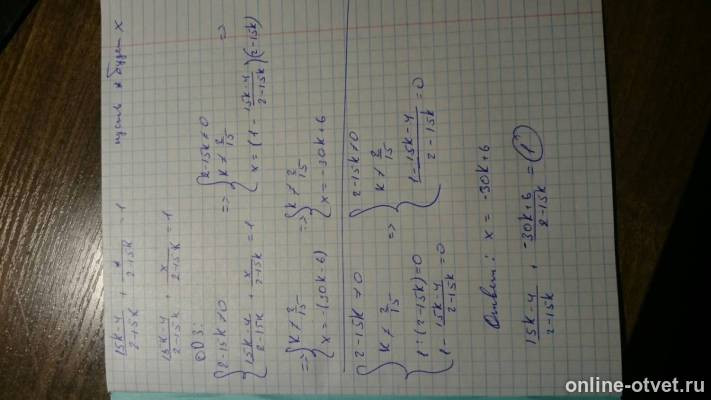 15k-4/2-15k + */2-15k = 1 пусть * будет x
15k-4/2-15k + x/2-15k = 1
ОДЗ:
{ 2-15k≠0 ; 15k-4/2-15k + x/2-15k = 1 => { 2-15k≠0 ; k≠2/15 ; x=(1-15k-4/2-15k)(2-15k) =>
=> { k≠2/15 ; x=-(30k-6) => { k≠2/15 ; x=-30k+6
{ 2-15k≠0 ; k≠2/15 ; 1-15k-4/2-15k=0 => { 2-15k≠0 ; k≠2/15 ; 1-15k-4/2-15k=0
Ответ: x = -30k+6
15k-4/2-15k + -30k+6/2-15k = 1
online-otvet.ru